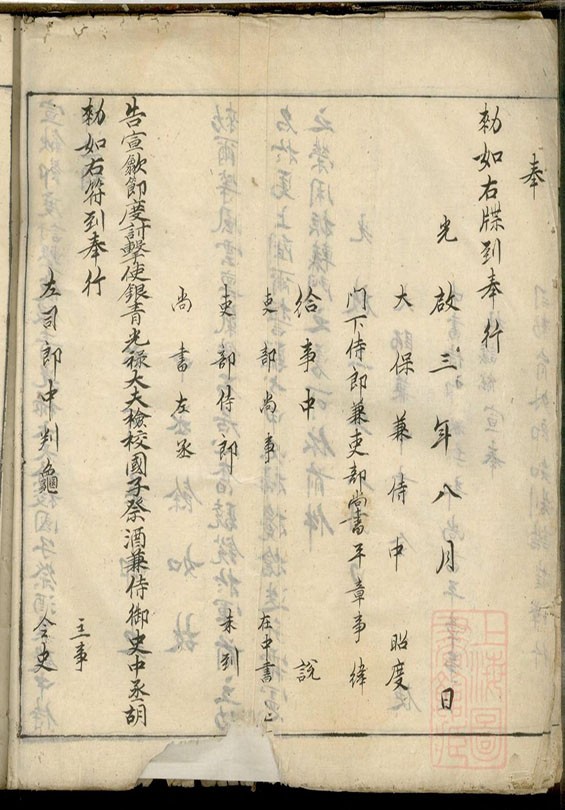 奉
勑如右牒到奉行
光啟三年八月日
大保兼侍中 昭度
門下侍郎兼吏部尚書平章事 緯
給事中 說
吏部尚事 在中書
吏部侍郎 未到
尚書左丞
告宣歙節度討擊使銀青光禄大夫檢校國子祭酒兼侍御史中丞胡
勑如右符到奉行
主事
左司郎中判 令史